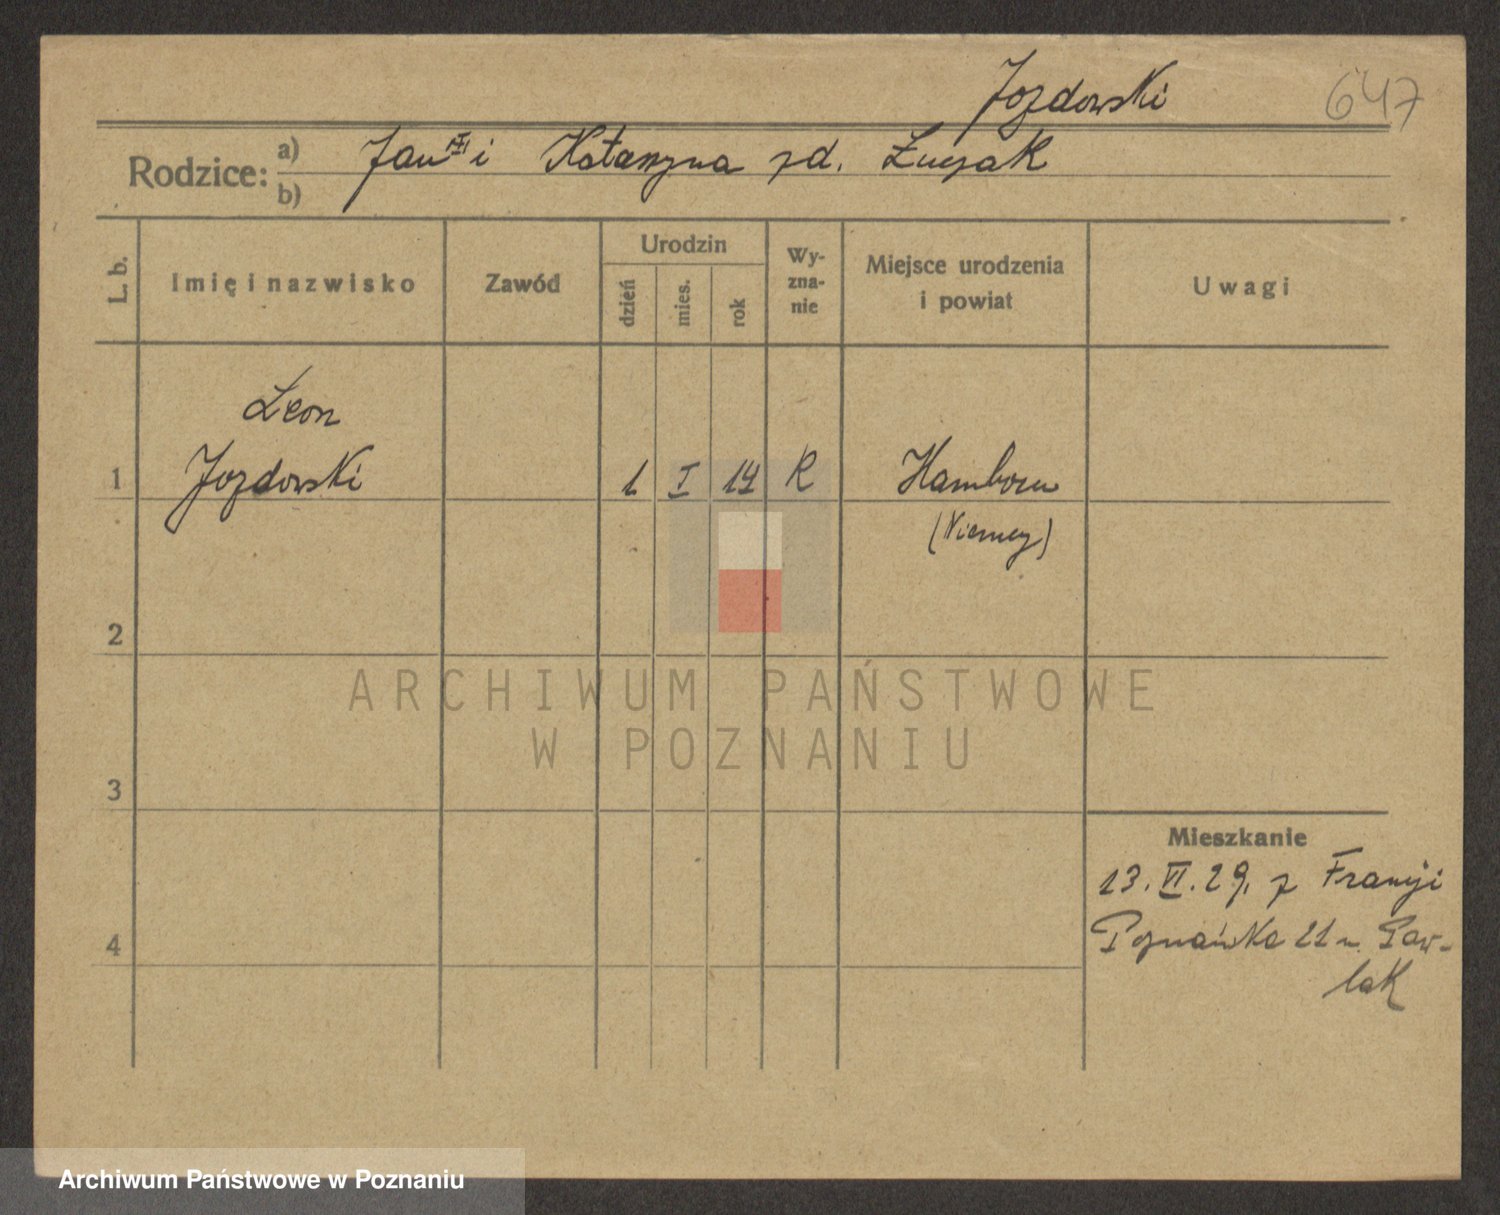 Jozdowski
647
Rodzice: a) Jan i Katarzyna zd. Łuczak
b)
L. b.
Imię i nazwisko
Zawód
Urodzin
dzień
mies.
rok
Wy-
zna-
nie
Miejsce urodzenia
i powiat
Uwagi
Leon
1 Jozdowski 1 I 14 R Hamborn
(Niemcy)
2
3
4
Mieszkanie
13. VI. 29. z Francji
Poznańska 21 u. Paw-
lak
ARCHIWUM PAŃSTWOWE
W POZNANIU
Archiwum Państwowe w Poznaniu